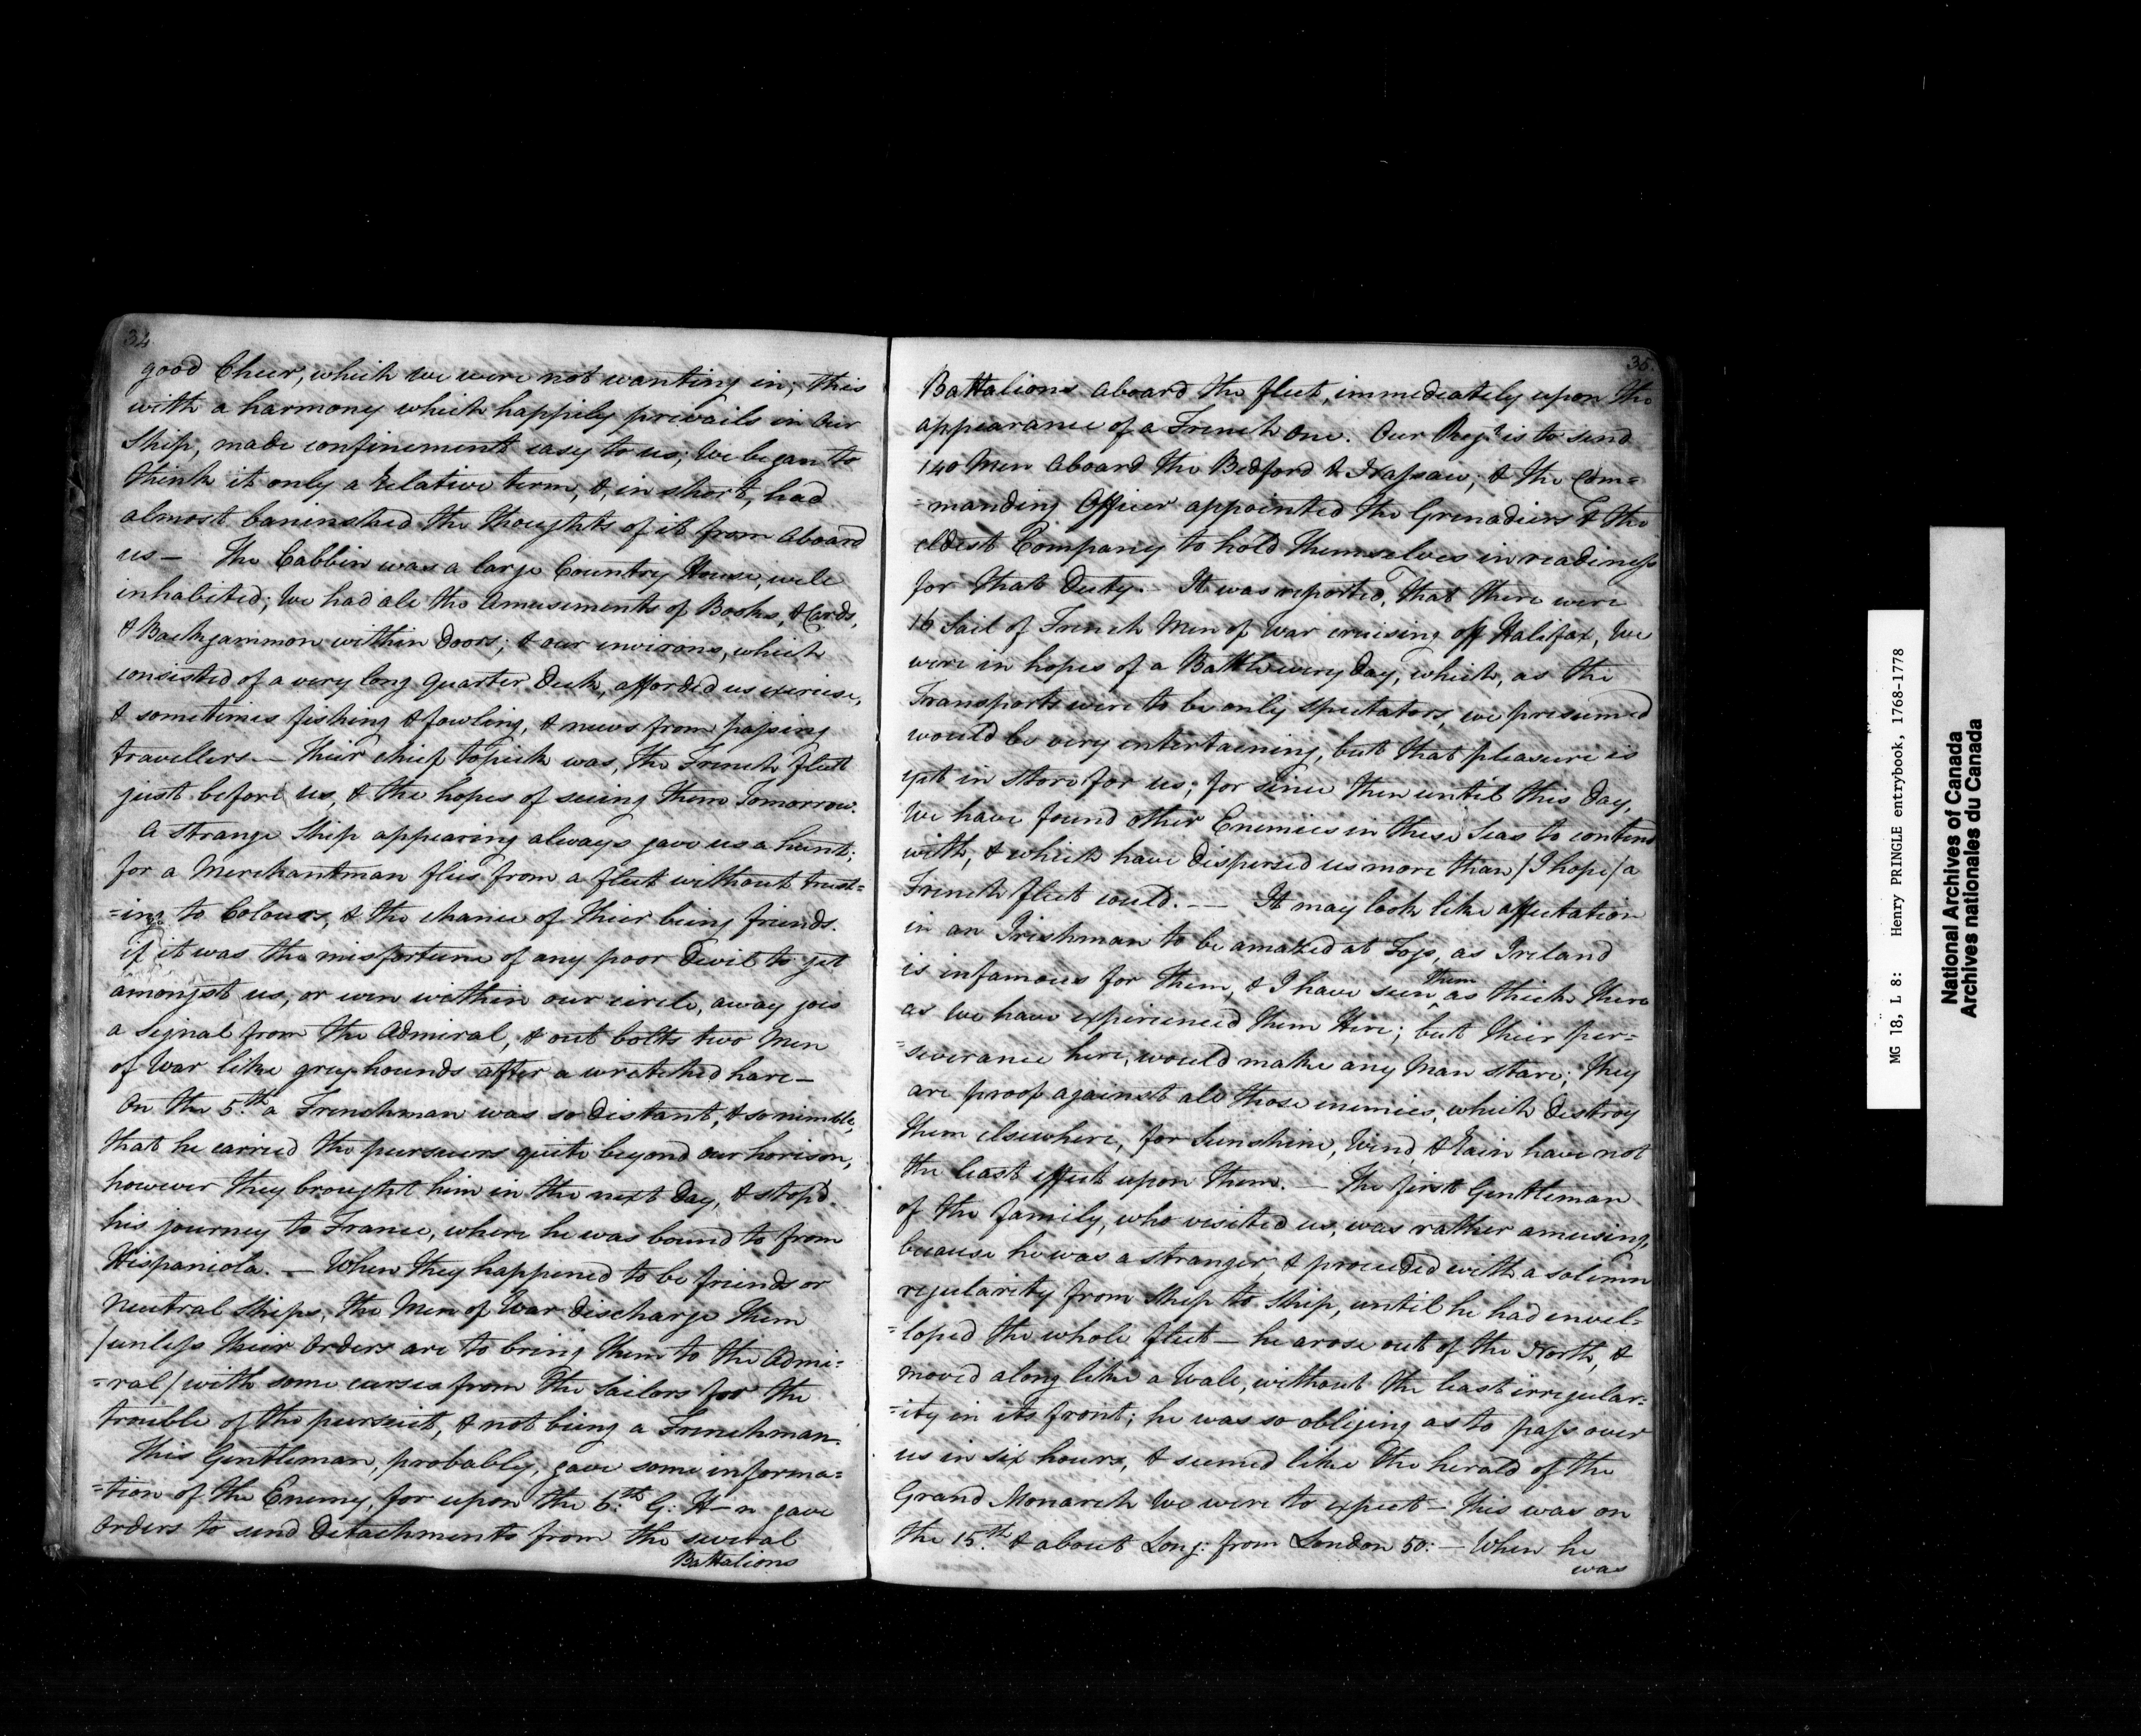 34
good Cheer, which we were not wanting in; this
with a harmony which happily prevails in our
Ship, made confinement easy to us; We began to
think it only a Relative term, &, in short, had
almost baninshed the thoughts of it from aboard
us — The Cabbin was a large Country House, well
inhabited; We had all the Amusements of Books, & Cards,
& Backgammon within Doors; & our environs, which
consisted of a very long Quarter Deck, afforded us exercise,
& sometimes fishing & fowling, & news from passing
travellers — Their chief topick was, the French fleet
just before us, & the hopes of seeing them Tomorrow.
A strange Ship appearing always gave us a hunt;
for a Merchantman flies from a fleet without trust=
=ing to Colours, & the chance of their being friends.
if it was the misfortune of any poor Devil to get
amongst us, or even within our circle, away goes
a Signal from the Admiral, & out bolts two Men
of War like grey hounds after a wretched hare —
On the 5:th a Frenchman was so distant, & so nimble,
that he carried the pursuers quite beyond our horison,
however they brought him in the next Day, & stop'd
his journey to France, where he was bound to from
Hispaniola. — When they happened to be friends or
Neutral Ships, the Men of War discharge them
/unless their Orders are to bring them to the Admi=
=ral/ with some curses from the Sailors for the
trouble of the pursuit, & not being a Frenchman.
This Gentleman, probably, gave some informa=
=tion of the Enemy, for upon the 6:th G: H—n gave
Orders to send Detachments from the several
Battalions
35.
Battalions aboard the fleet, immediately upon the
appearance of a French one. Our Reg:t is to send
140 Men aboard the Bedford & Nassaw; & the Com=
=manding Officer appointed the Grenadiers & the
eldest Company to hold themselves in readiness
for that Duty. It was reported, that there were
16 Sail of French Men of War cruising off Halifax, We
were in hopes of a Battle every Day, which, as the
Transports were to be only spectators, we presumed
would be very entertaining, but that pleasure is
yet in store for us; for since then until this Day,
We have found other Enemies in these Seas to contend
with, & which have dispersed us more than /I hope/ a
French fleet could. — — It may look like affectation
in an Irishman to be amazed at Fogs, as Ireland
is infamous for them, & I have seen them as thick there
as We have experienced them Here; but their per=
=severance here, would make any Man stare; They
are proof against all those enemies, which destroy
them elsewhere, for Sunshine, Wind, & Rain have not
the least effect upon them. — The first Gentleman
of the family, who visited us, was rather amusing,
because he was a stranger, & proceeded with a solemn
regularity from Ship to Ship, until he had envel=
=loped the whole fleet — he arose out of the North, &
moved along like a Wall, without the least irregular=
=ity in its front; he was so obliging as to pass over
us in six hours, & seemed like the herald of the
Grand Monarch We were to expect — this was on
the 15:th & about Long: from London 50: — When he
was
MG 18, L 8: Henry PRINGLE entrybook, 1768-1778
National Archives of Canada
Archives nationales du Canada